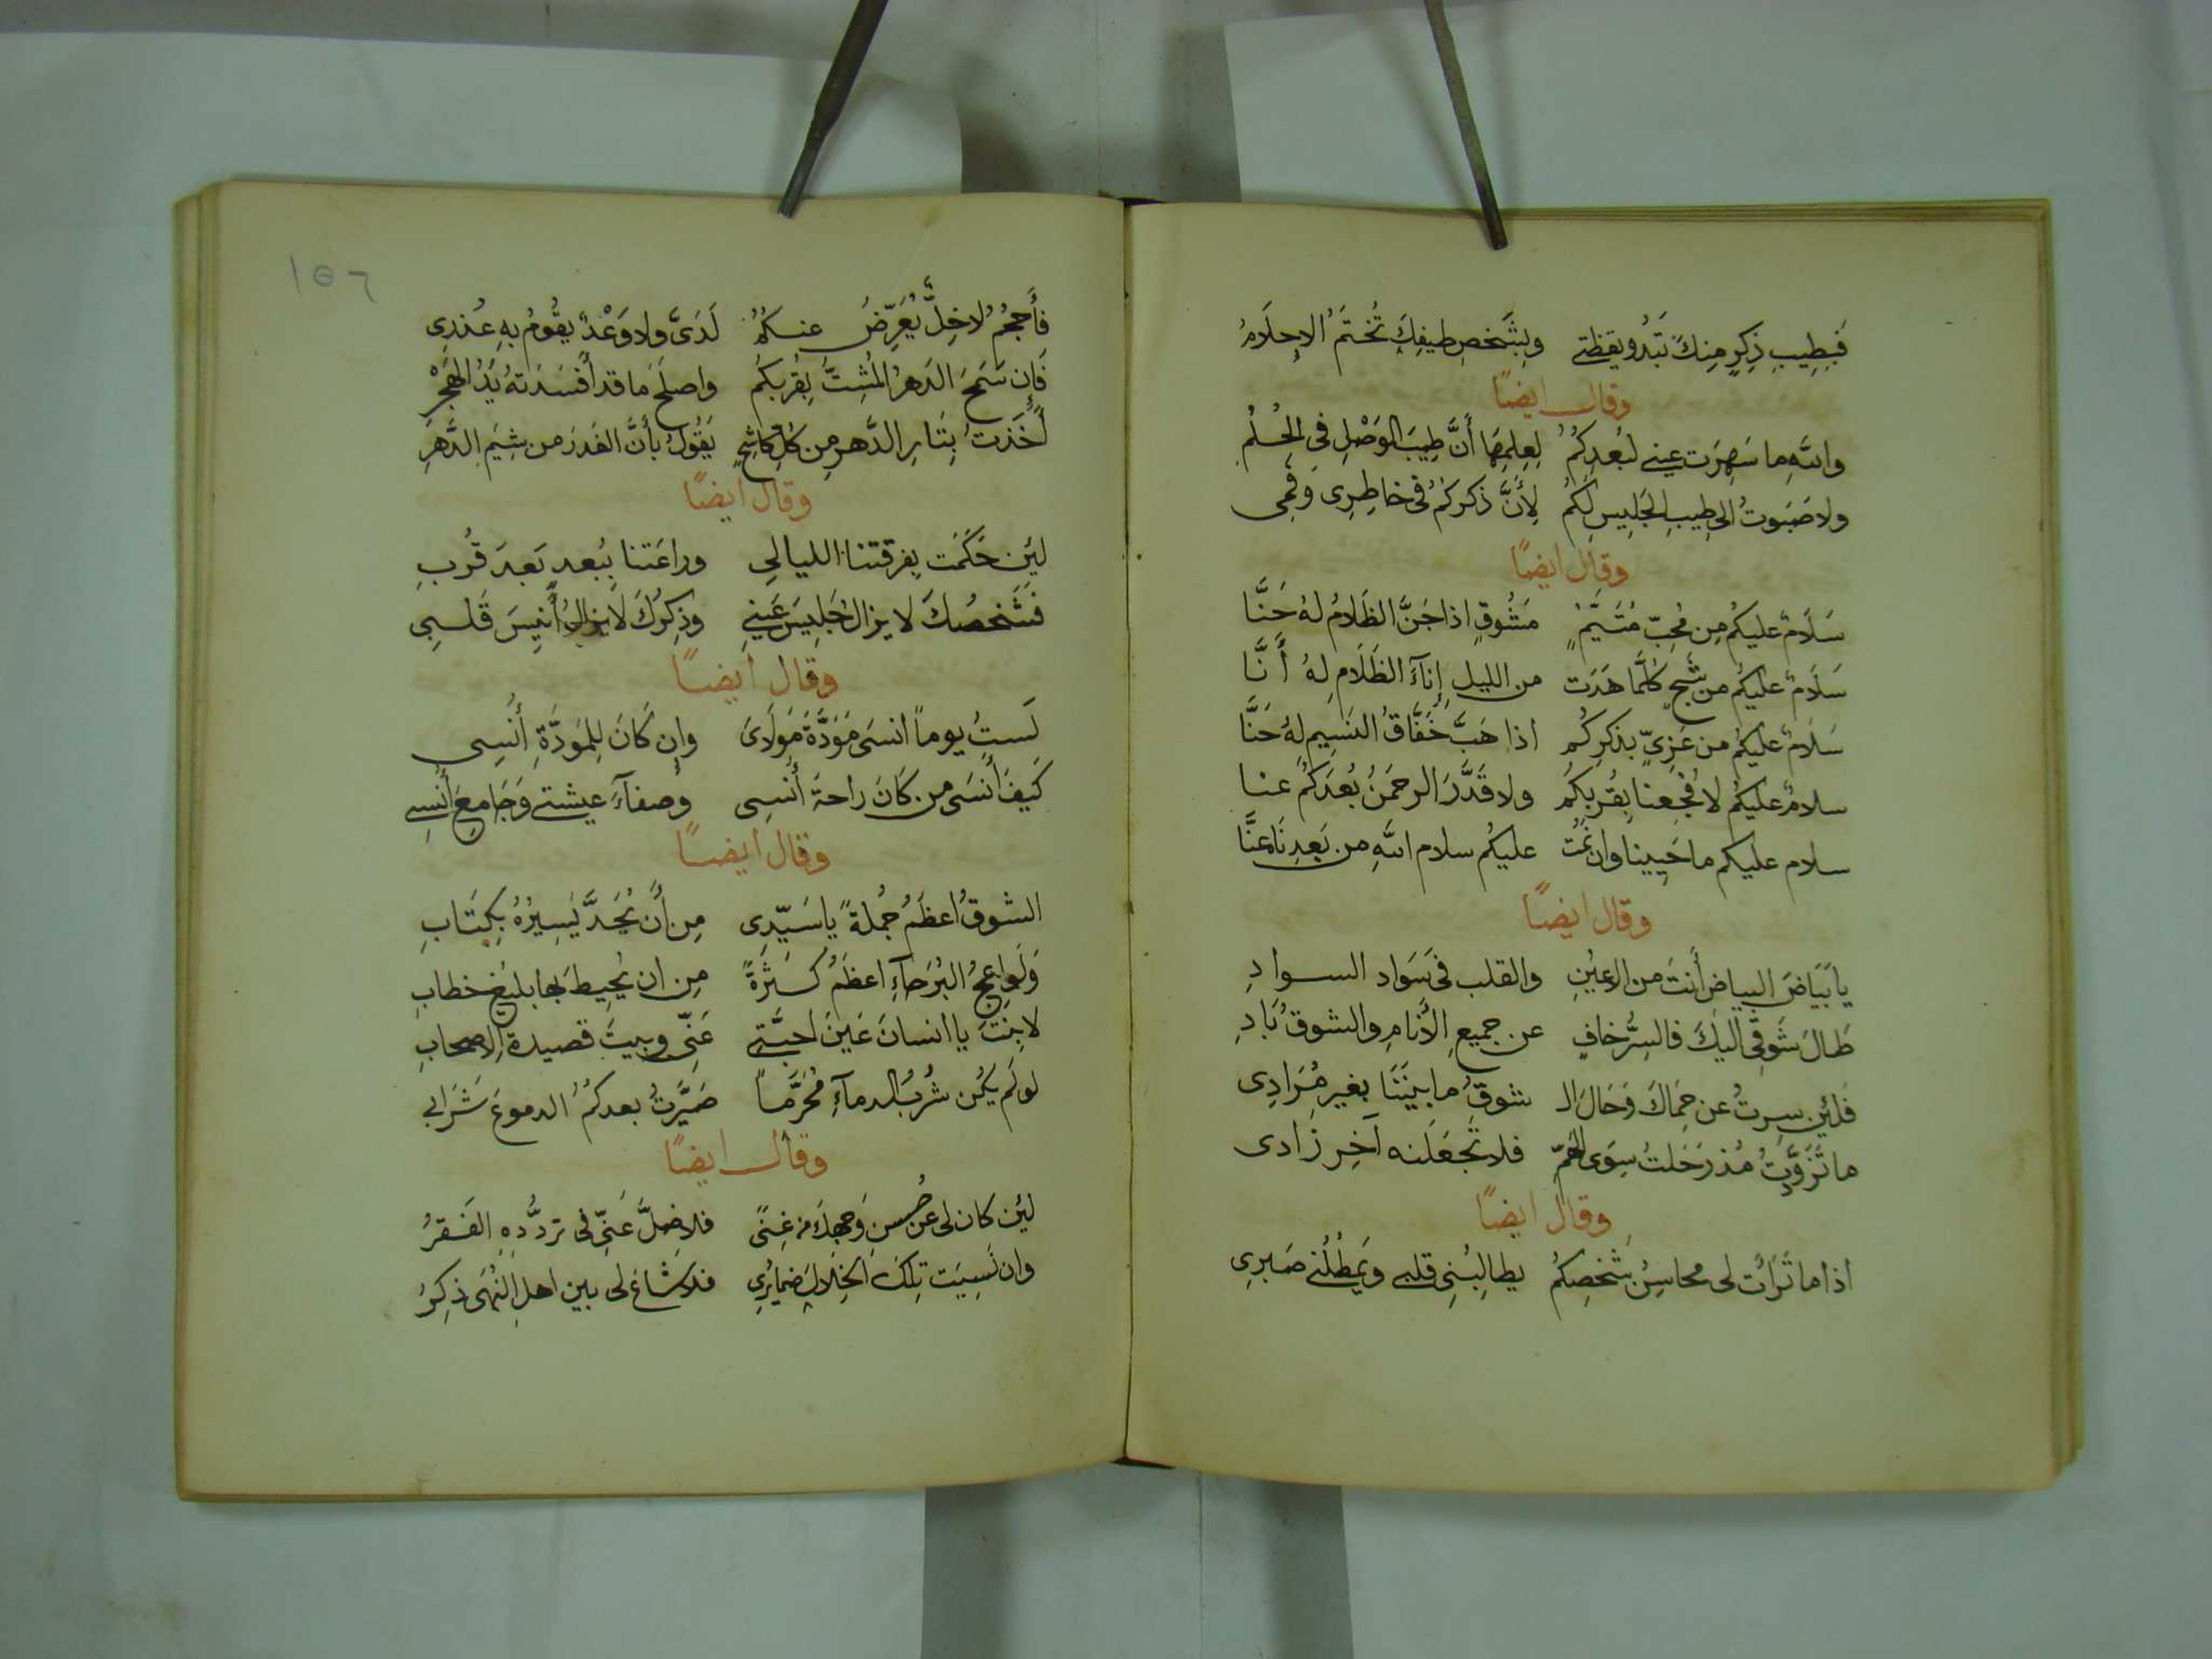 فَبِطِيبِ ذِكرٍ مِنكَ تَبَدُو يقظتي وبِشَخصِ طيفِكَ تُختَمُ الاِحلَامُ
وقال ايضًا
واللهِ ما سَهِرَت عيني لبُعدِكُمُ لِعِلمِهَا أَنَّ طِيبَ الوَصْلِ فِي الحُلُمِ
ولا صَبَوتُ الى طِيبِ الجَلِيسِ لَكُم لِأَنَّ ذكركُمُ فى خاطِرِى وفَمِى
وقال ايضًا
سَلَامٌ عليكُم مِن مُحِبٍّ مُتَيَّمٍ مَشُوقٍ اذا جَنَّ الظَلامُ لهُ حَنَّا
سَلَامٌ عليكُم من شَجٍ كلَّما هَدَت من الليلِ إِنآءَ الظَلَامِ لهُ أَنَّا
سَلَامٌ عليكُم من عَزِيٍّ بذكرِكُم اذا هَبَّ خَفَّاقُ النَسِيمِ لهُ حَنَّا
سلامٌ عليكُم لا فُجِعنا بِقُربِكُم ولا قَدَّرَ الرحمَنُ بُعدَكُمُ عنا
سلام عليكم ما حَيِينا وان نَمُت عليكُم سلام اللهِ من بَعدِنَا عَنَّا
وقال ايضًا
يا بَيَاضَ البياضِ أَنتَ من العينِ والقلب فى سَوَاد السوادِ
طَالَ شَوقِى اليكَ فالسِّرُّ خافٍ عن جميعِ الأَنامِ والشوقُ بَادِ
فلئِن سِرتُ عن حِمَاكَ وَحَالَ الـ شوقُ ما بينَنَا بغيرِ مُرَادِى
ما تَزَوَّدتُ مُذ رَحَلتُ سِوَى الهَمِّ فلا تَجعَلَنه آخِرَ زَادى
وقال ايضًا
اذا ما تَرَاءَت لى محاسِنُ شَخصِكُم يطالِبُنِى قلبي ويَمطُلُني صَبرِى
فأَحجُمُ لا خِلٌّ يُعَرِّضُ عنكُمُ لَدَىَّ ولا وَعْدٌ يقُومُ بهِ عُذرِى
فَإِن سَمَحَ الدَهرُ المُشِتُّ بِقُربِكُم واصلَحَ ما قد أَفسَدَتهُ يَدُ الهَجْرِ
أَخَذتُ بِثَارِ الدَّهرِ مِن كُلِّ كَاشِحٍ يَقُولُ بأَنَّ الغَدرَ من شِيَمِ الدَّهرِ
وقال ايضًا
لئِن حَكَمَت بِفرقتنا الليالِي وراعَتنا ببُعدٍ بَعدَ قُربِ
فشَخصُكَ لا يزالُ جَلِيسَ عَينِي وذِكرُكَ لا يزالُ أَنِيسَ قَلبِي
وقال ايضًا
لَستُ يوماً انسَى مَوَدَّةَ مَولَاىَ وإن كَانَ لِلمَوَدَّةِ أُنسِى
كَيفَ أَنسَى من كَانَ راحةَ أُنسِى وصفآءَ عيشتي وَجَامِعَ أُنسِي
وقال ايضًا
الشوقُ اعظَمُ جُملةً يا سَيّدِى مِن أَن يُحَدَّ يَسِيرُهُ بِكِتَابِ
وَلَوَاعِجُ البُرَحَآءِ اعظَمُ كَثرَةً مِن ان يُحِيطَ بها بليغ خطابِ
لا بِنتَ يا انسانَ عَينَ احبَّتي عَنّى وبيتَ قصيدةِ الاصحابِ
لو لَم يَكُن شُربُ الدمآءِ مُحَرَّماً صَيَّرتُ بعدكُمُ الدموعَ شَرَابى
وقال ايضًا
لئِن كان لى عن حُسنِ وَجهِكَ من غِنًى فلا ضلَّ عَنّى فى تردُّدِهِ الفَقرُ
وان نَسِيَت تِلكَ الخِلالَ ضمايرى فلا شاعَ لى بين اهلِ النُهَى ذِكرُ
١٥٦